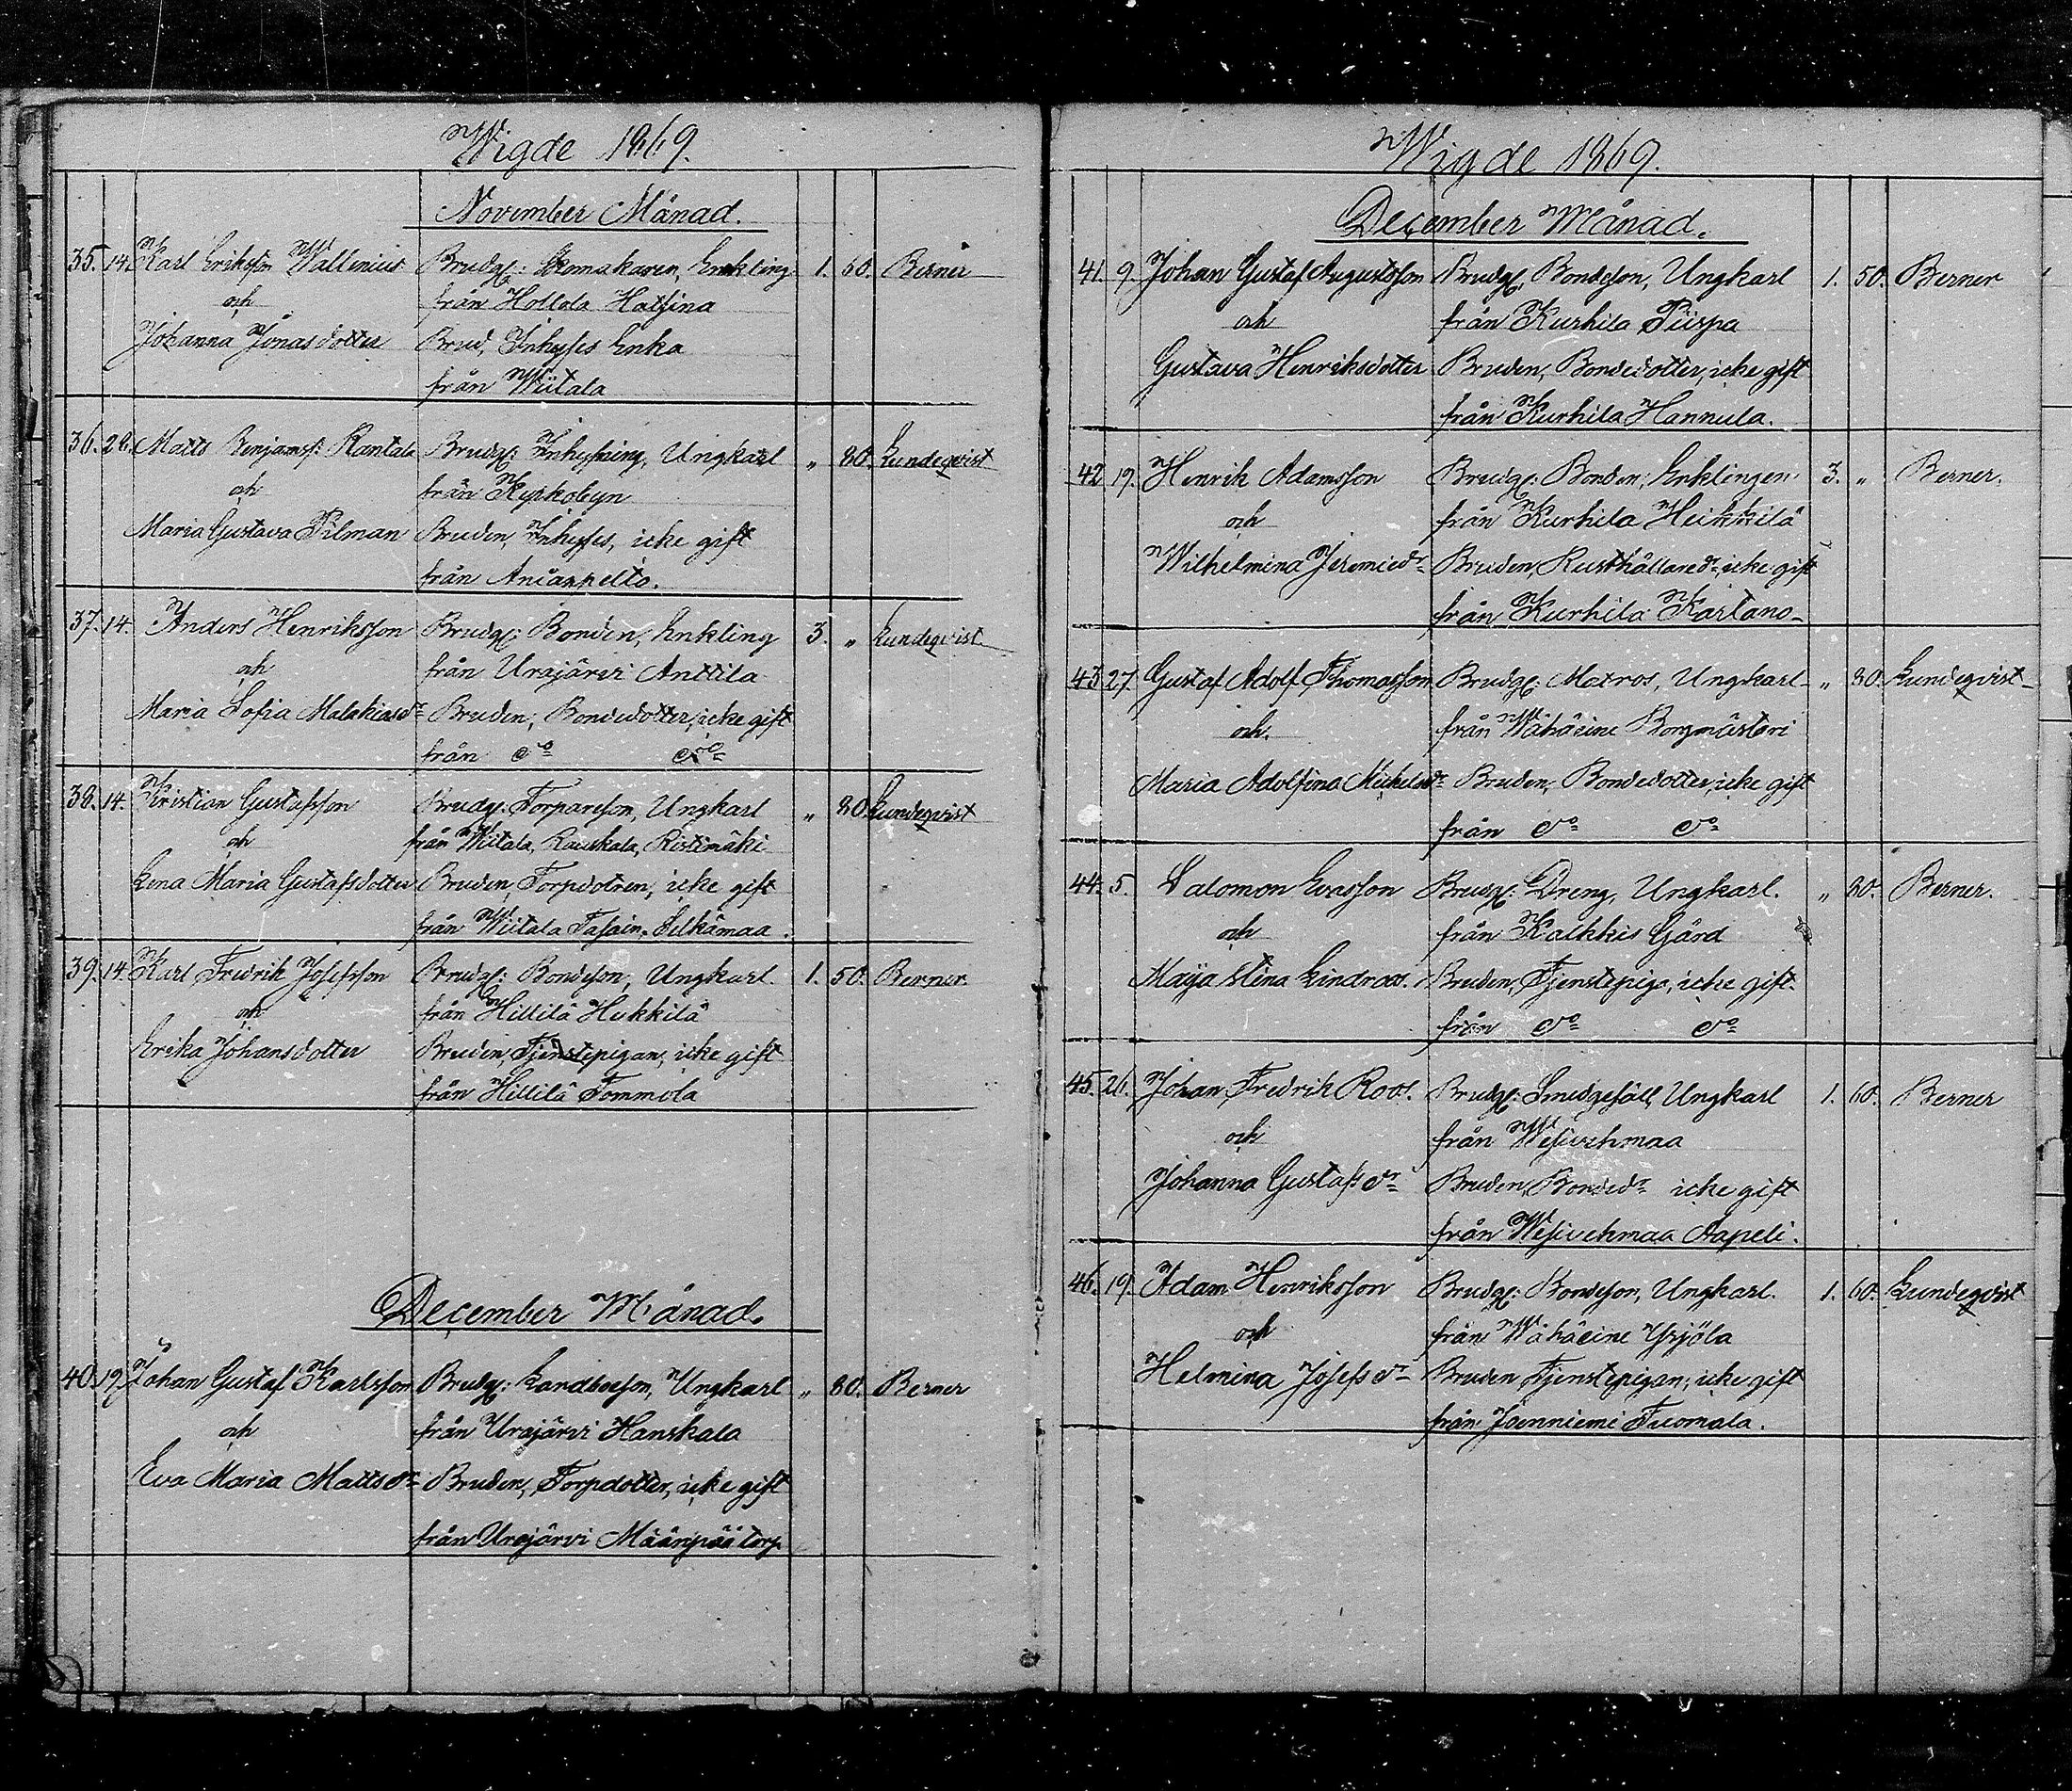 Wigde 1869.
November Månad.
35. 14. Karl Eriksson Wallenius Brudg: Skomakaren, Enkling 1. 60. Berner
och från Hollola Hatsina
Johanna Jonasdotter Brud, Inhyses Enka
från Wiitala
36. 28. Matts Benjamss: Rantala Brudg: Inhysing, Ungkarl " 80. Lundeqvist
och från Kyrkobyn
Maria Gustava Pilman Bruden, Inhyses, icke gift
från Anianpelto.
37. 14. Anders Henriksson Brudg: Bonden, Enkling 3. " Lundeqvist
och från Urajärvi Anttila
Maria Sofia Malakiasdr Bruden, Bondedotter, icke gift
från do do
38. 14. Kristian Gustafsson Brudg: Torpareson, Ungkarl " 80. Lundeqvist
och från Wiitala, Rauskala, Ristimäki
Lena Maria Gustafsdotter Bruden, Torpdotren, icke gift
från Wiitala Tasain, Silkämaa.
39. 14. Karl Fredrik Josefsson Brudg: Bondeson, Ungkarl. 1. 50. Berner.
och från Hillilä Heikkilä
Erika Johansdotter Bruden, Tjenstepigan, icke gift
från Hillilä Tommola
December Månad.
40. 19. Johan Gustaf Karlsson Brudg: Landboeson, Ungkarl " 80. Berner
och från Urajärvi Hanskala
Eva Maria Mattsdr Bruden, Torpdotter, icke gift
från Urajärvi Määnpää torp
Wigde 1869.
December Månad.
41. 9. Johan Gustaf Augustsson Brudg: Bondeson, Ungkarl 1. 50. Berner
och från Kurhila Piispa
Gustava Henriksdotter Bruden, Bondedotter, icke gift
från Kurhila Hannula.
42 19. Henrik Adamsson Brudg: Bonden, Enklingen 3. " Berner.
och från Kurhila Heikkilä
Wilhelmina Jeremiedr Bruden, Rusthållaredr, icke gift
från Kurhila Kartano
43 27. Gustaf Adolf Thomasson Brudg: Matros, Ungkarl " 80. Lundeqvist
och från Wähäeine Borgmästari
Maria Adolfina Mickelsdr Bruden, Bondedotter, icke gift
från do do
44. 5. Salomon Evasson Brudg: Dreng, Ungkarl. " 80. Berner.
och från Kalkkis Gård
Maija Stina Lindroos. Bruden, Tjenstepiga, icke gift.
från do do
45. 26. Johan Fredrik Roos. Brudg: Smedgesäll, Ungkarl 1. 60. Berner
och från Wesivehmaa
Johanna Gustafsdr Bruden, Bondedr icke gift
från Wesivehmaa Aapeli.
46. 19. Adam Henriksson Brudg: Bondeson, Ungkarl. 1. 60. Lundeqvist
och från Wähäeine Yrjölä
Helmina Josefsdr Bruden Tjenstepigan, icke gift
från Joenniemi Tuomala.